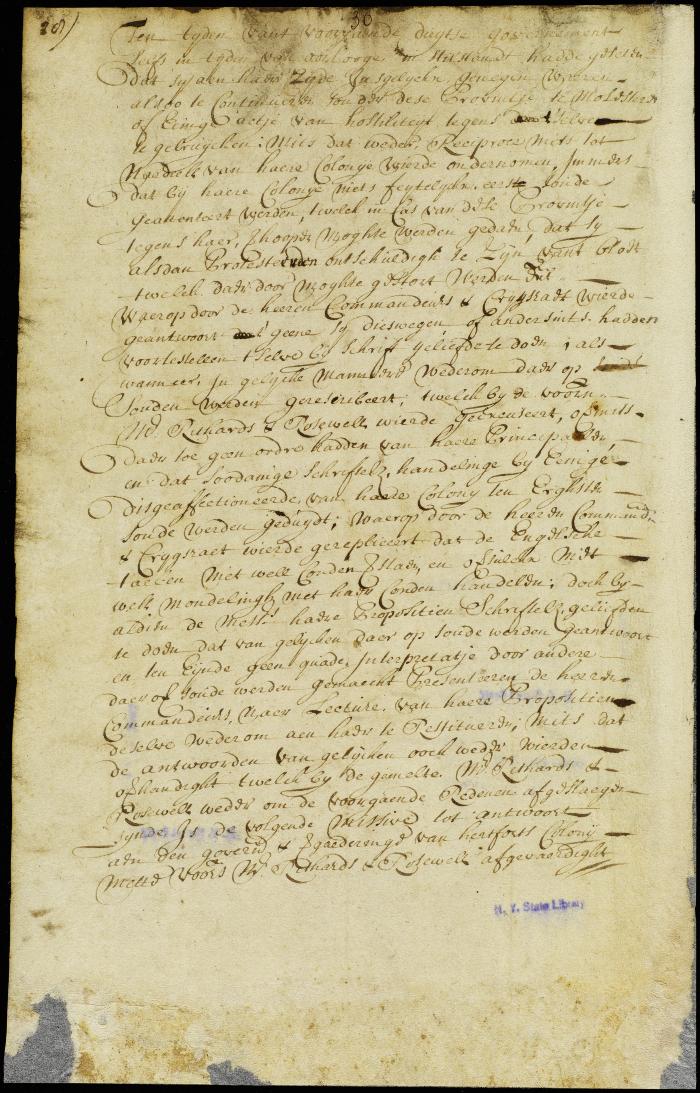 28)
30
Ten tyden vant voorgaende duytse gouvernement
selfs in tyden van oorlooge in stilstandt hadde geseten
dat sy aen haer zyde insgelyckx genegen waeren
alsoo te Continueren sonder dese Provintje te molesteren
of Eenige actje van hostiliteyt tegens deselve
te gebruycken; Mits dat weder Reciproce niets tot
Nadeele van haere Colonye wierde ondernomen, Immers
dat by haere Colonye niets feytelyckx eerst soude
geattenteert werden, twelck in Cas van dese Provintje
tegens haer, verhoopt moghte werden gedaen, dat sy
alsdan Protesteerden ontschuldigh te zyn vant bloet
twelck daer door moghte gestort werden
Waerop door de heeren Commandeurs & Crygsraedt wierde
geantwoort geene sy dieswegen of andersints hadden
voortestellen tselve by schrift geliefde te doen; als
wanneer, In gelycke Manieren wederom daer op
souden werden gerescribeert; twelck by de voorn.
Mr. Rithards & Rosewell wierde geexcuseert, of mits
daer toe geen ordre hadden van haere Principaelen,
en dat soodanige schriftelk. handelinge by Eenige
disgeaffectioneerde van haere Colony ten Erghsten
soude werden geduydt; waerop door de heeren Command:rs
& Crygsraet wierde gerepliceert dat de Engelsche
taele niet well Conden verstaen, en of sulcx niet
well mondelingh met haer Conden handelen; doch by
aldien de Mess:rs haere Propositien Schriftelk. geliefden
te doen dat van gelycken daer op soude werden geantwoort
en ten Eynde geen quade Interpretatje door andere
daer of soude werden gemaeckt Presenteeren de heeren
Commandeurs, naer Lecture van haere Propositien
deselve wederom aen haer te Restitueren; mits dat
de antwoorden van gelycken oock weder wierden
overhandight twelck by de gemelte Mr. Rithards &
Rosewell weder om de voorgaende Redenen afgeslaegen
synde Is de volgende missive tot antwoort
aen den govern:r & vergaederinge van hertforts Colony
mette voors. Mr. Rithards & Rosewell afgevaerdight
N. Y. State Library